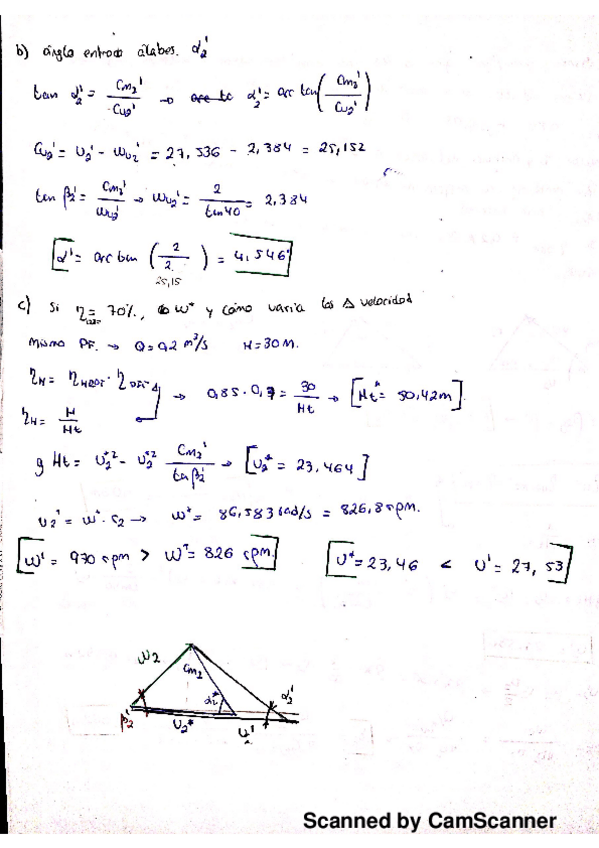 b) ángulo entrada álabes. α₂'
tan α₂' = Cm₂' / Cu₂' → α₂' = arc tan (Cm₂' / Cu₂')
Cu₂' = U₂' - Wu₂' = 27,536 - 2,384 = 25,152
tan β₂' = Cm₂' / Wu₂' → Wu₂' = 2 / tan 40 = 2,384
[α' = arc tan (2 / 2. ) = 4,546°]
25,15
c) Si η = 70%, w* y cómo varía los Δ velocidad
mismo PF. → Q = 0,2 m³/s H = 30 m.
η_H = η · η → 0,85 · 0,7 = 30 / Ht → [Ht* = 50,42m].
η_H = H / Ht
g Ht = U₂*² - U₂* Cm₂' / tan β₂' → [U₂* = 23,464]
U₂' = w* · r₂ → w* = 86,583 rad/s = 826,8 rpm.
[w' = 970 rpm > w* = 826 rpm.] [U* = 23,46 < U' = 27,53]
W₂
Cm₂
α₂* α₂'
β₂' U₂* U₂'
Scanned by CamScanner